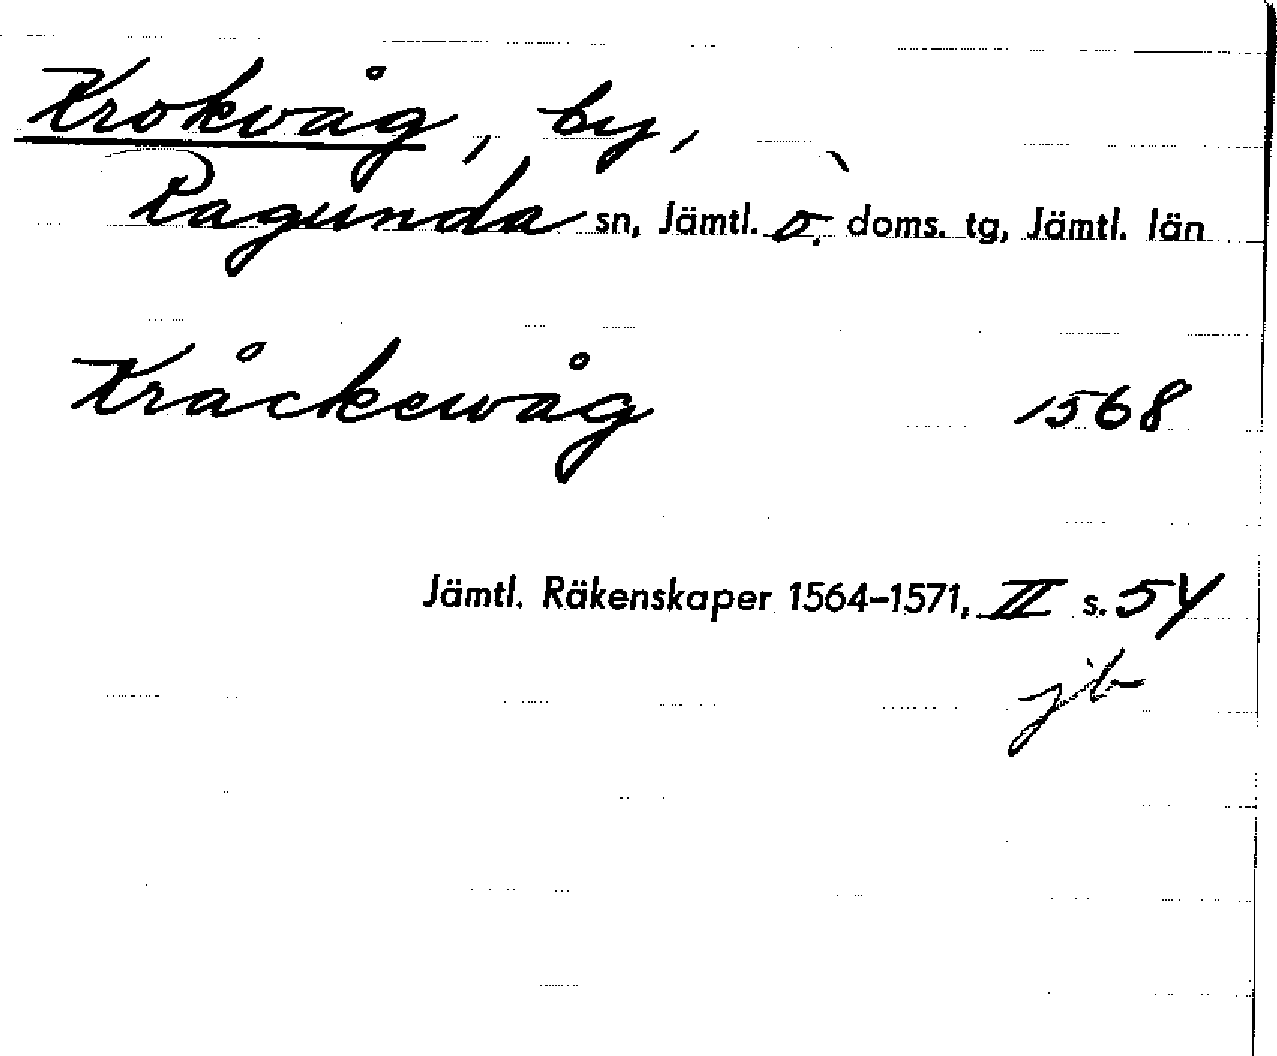 Krokvåg, by,
Ragunda sn, Jämtl. ö. doms. tg, Jämtl. län
Kråckewåg 1568
Jämtl. Räkenskaper 1564-1571, II s. 54
jb